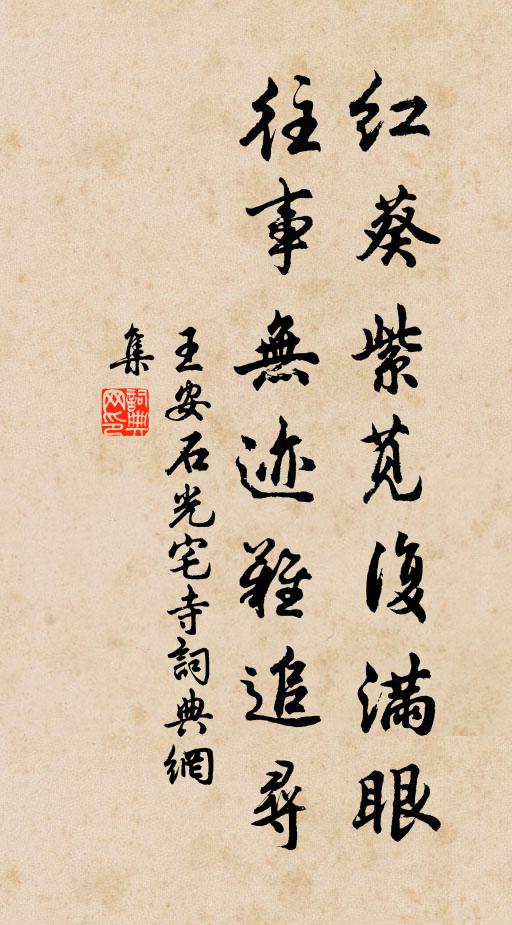 红葵紫莧復滿眼
往事無迹難追尋
王安石光宅寺詞典網
集
詞典網印